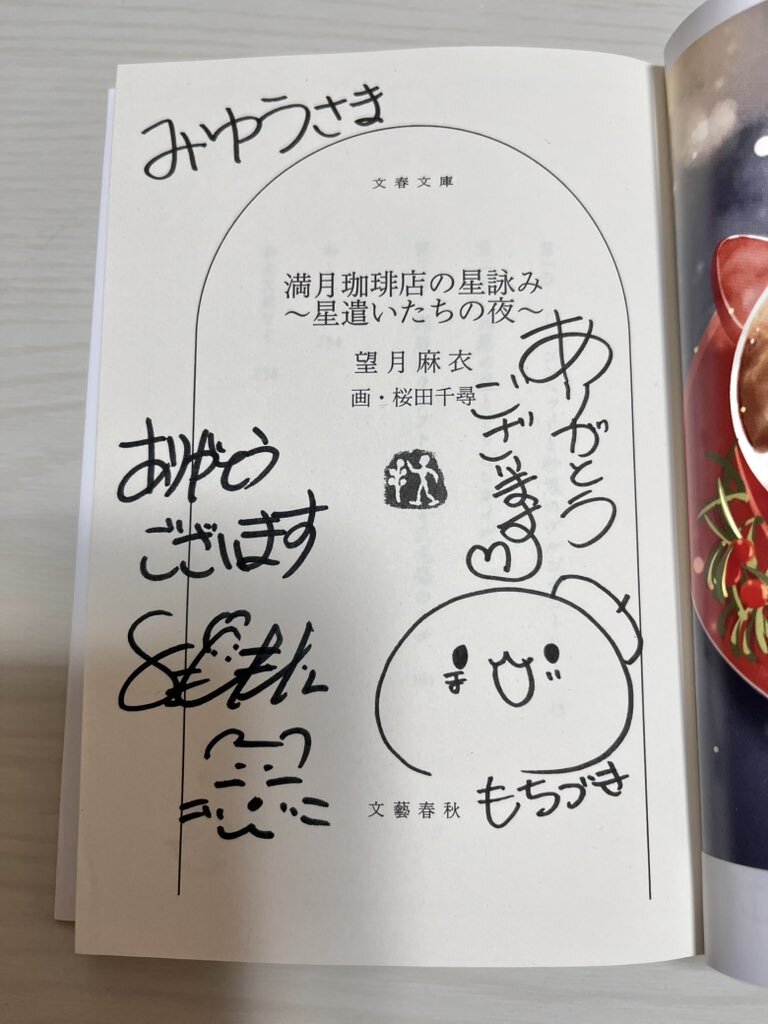 みゆうさま
文春文庫
満月珈琲店の星詠み
〜星遣いたちの夜〜
望月麻衣
画・桜田千尋
ありがとう
ございます
ありがとう
ございます
もちづき
文藝春秋